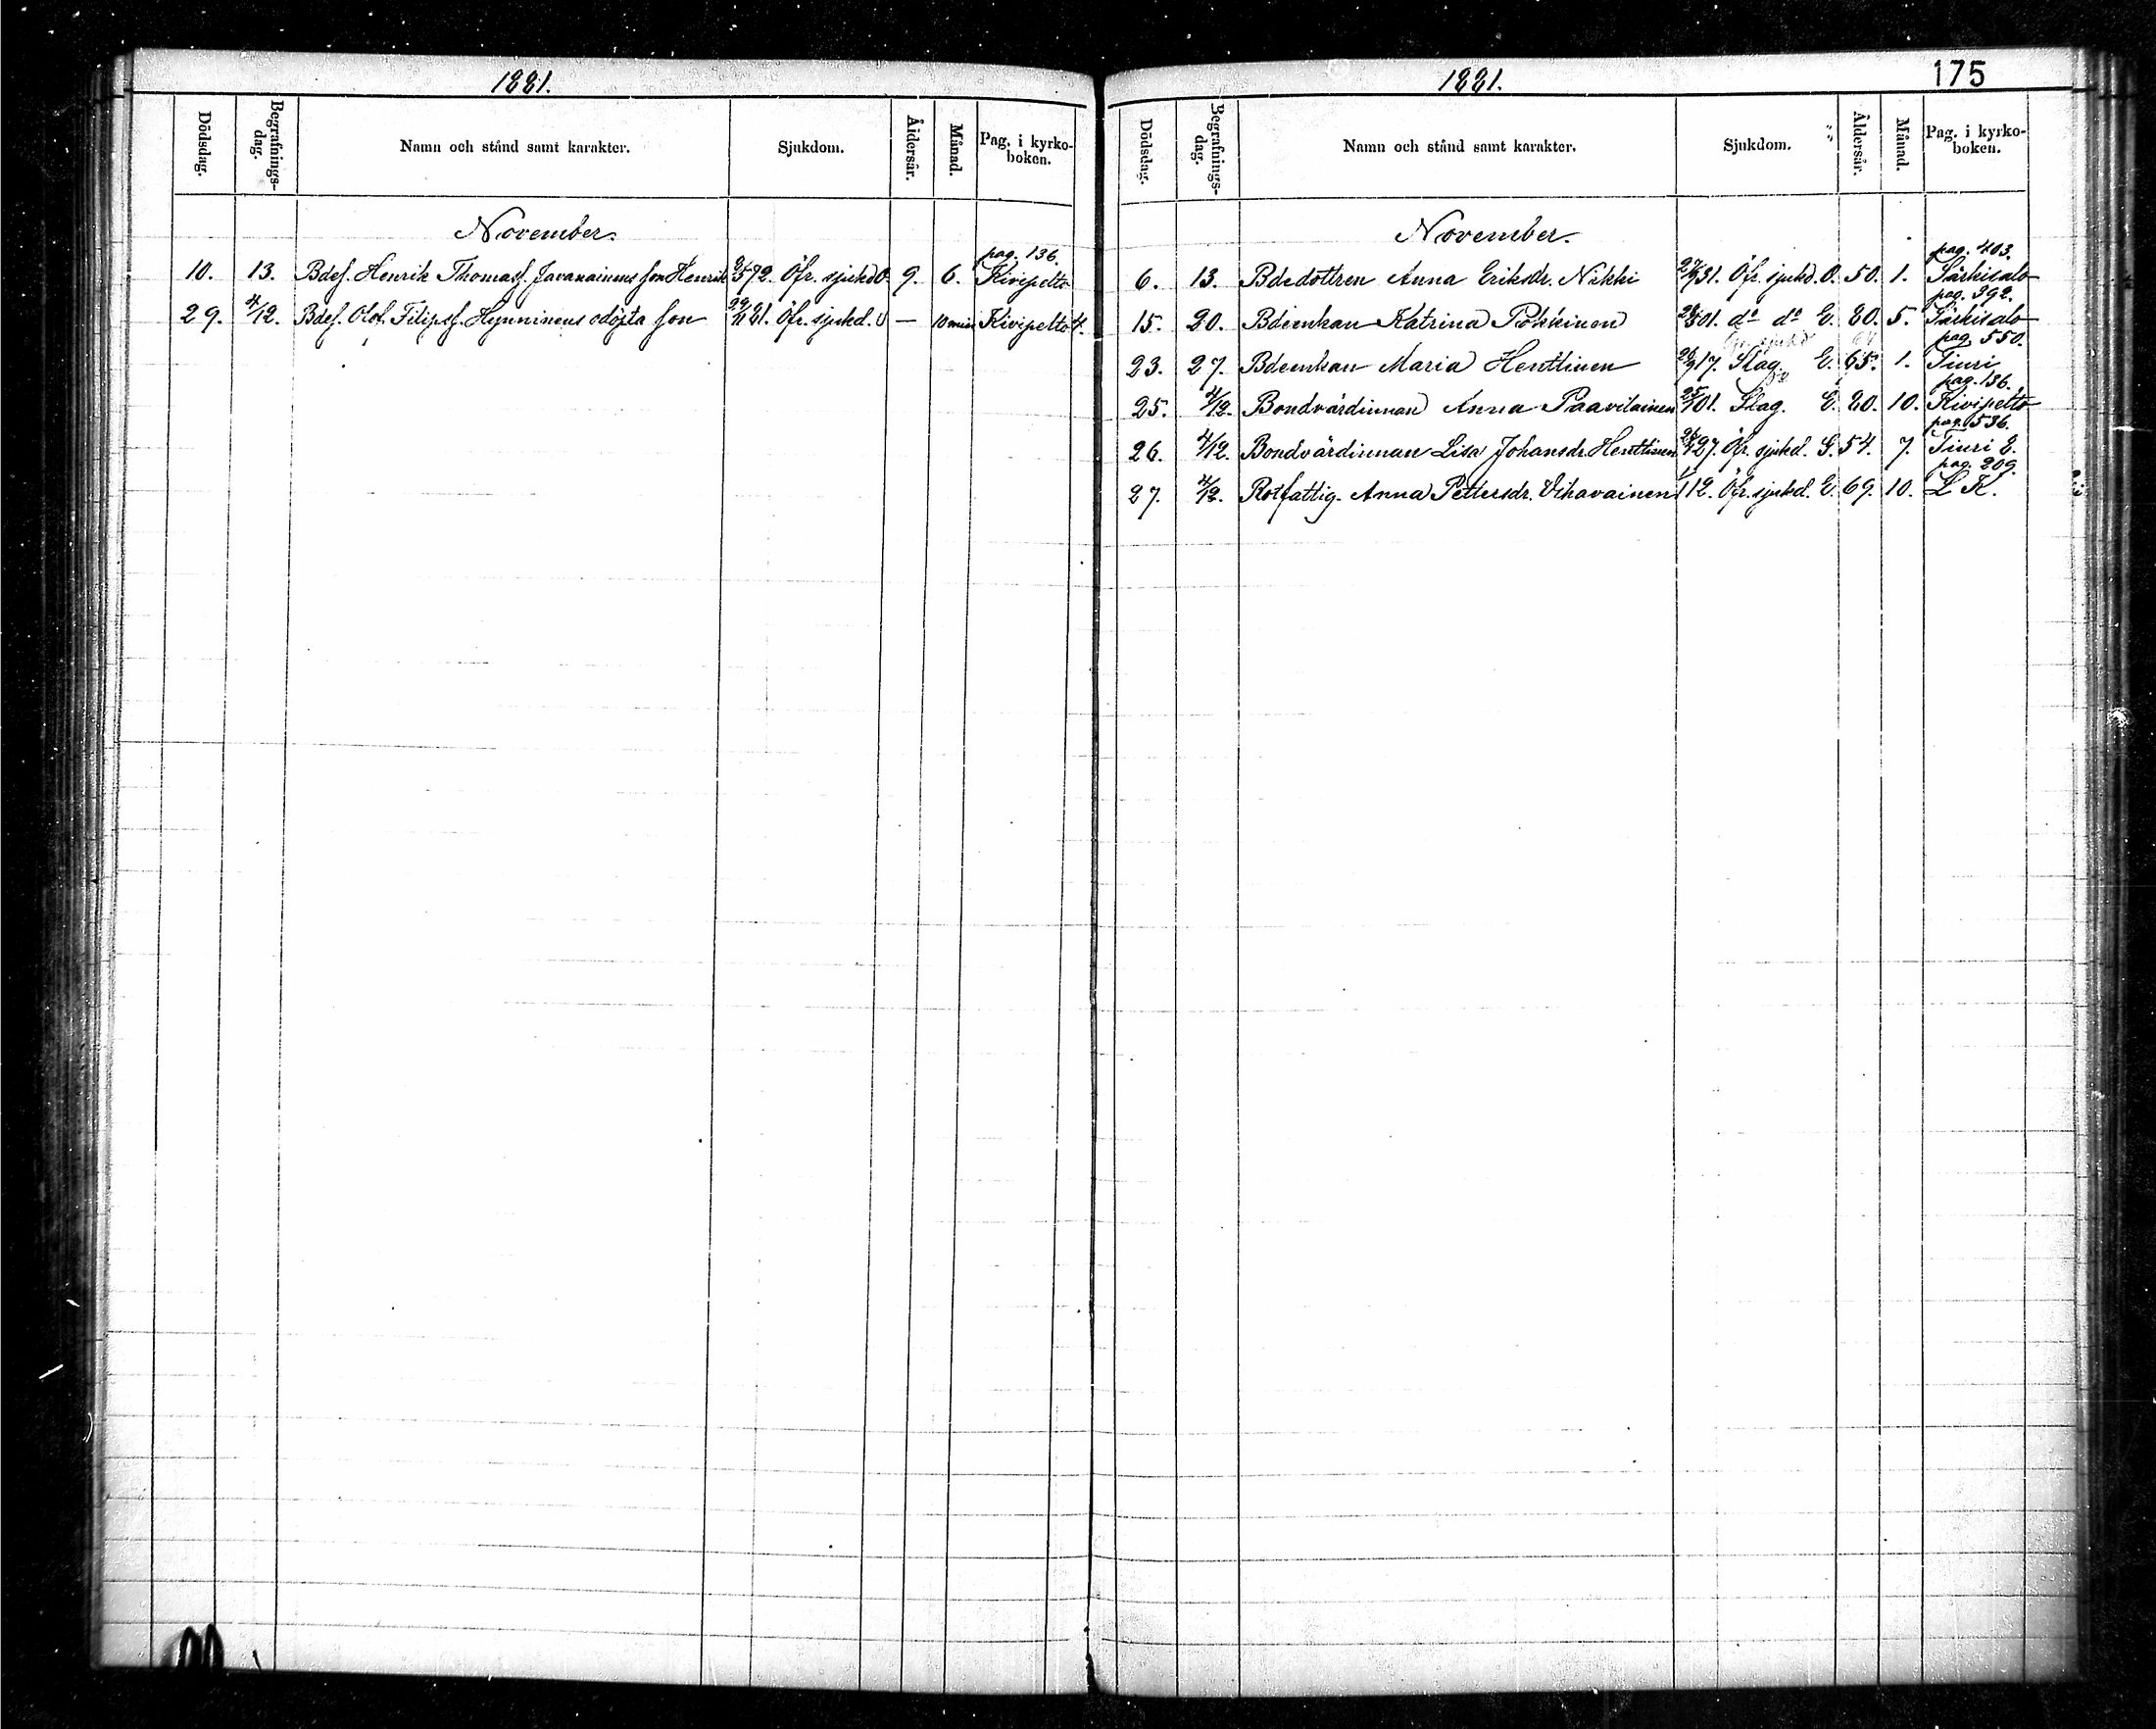 1881.
Dödsdag. Begrafnings-dag. Namn och stånd samt karakter. Sjukdom. Åldersår. Månad. Pag. i kyrko-boken.
November.
pag. 136.
10. 13. Bdes. Henrik Thomass. Javanainens son Henrik 3/5 72. Öfr. sjukd O. 9. 6. Kivipelto
29. 4/12. Bdes. Olof Filipss. Hynninens odöpta son 29/11 81. Öfr. sjukd. O — 10 min Kivipelto
1881. 175
Dödsdag. Begrafnings-dag. Namn och stånd samt karakter. Sjukdom. Åldersår. Månad. Pag. i kyrko-boken.
November.
pag. 403.
6. 13. Bdedottren Anna Eriksdr. Nikki 31. Öfr. sjukd. O. 50. 1. Särkisalo
pag. 392.
15. 20. Bdeenkan Katrina Pökkinen 01. do do E. 80. 5. Särkisalo
pag. 550.
23. 27. Bdeenkan Maria Henttinen 17. Slag. E. 65. 1. Tiuri
pag. 136.
25. 4/12. Bondvärdinnan Anna Paavilainen 01. Slag. E. 80. 10. Kivipelto
pag. 536.
26. 4/12. Bondvärdinnan Lisa Johansdr. Henttinen 27. Öfr. sjukd. G. 54. 7. Tiuri E.
pag. 209.
27. 4/12. Rotfattig. Anna Pettersdr. Vihavainen 1/1 12. Öfr. sjukd. E. 69. 10. L K.